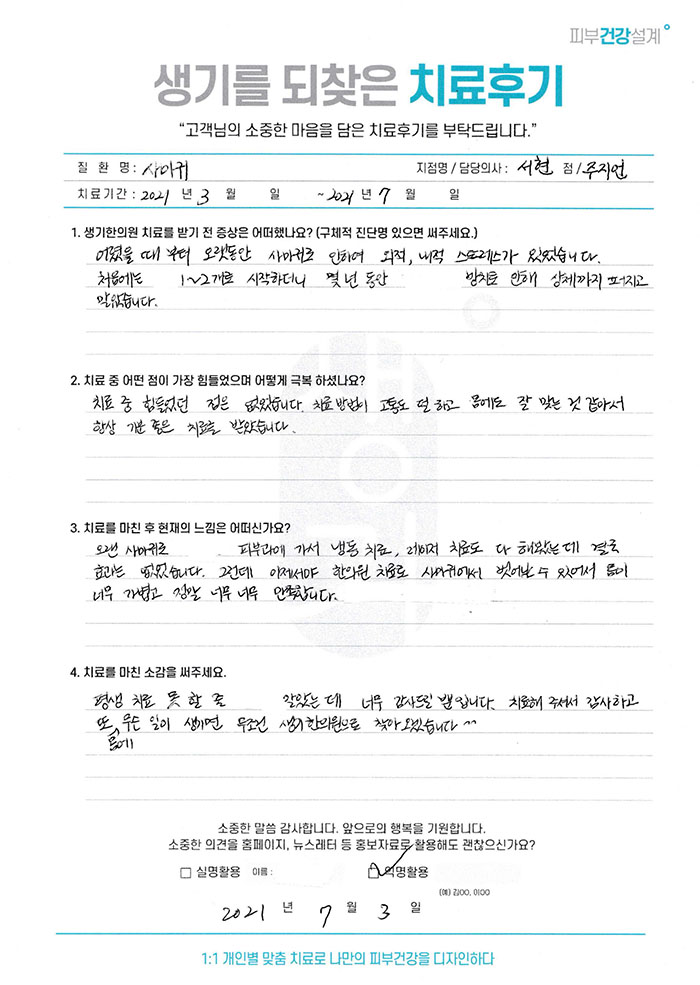 피부건강설계
생기를 되찾은 치료후기
“고객님의 소중한 마음을 담은 치료후기를 부탁드립니다.”
질 환 명 : 사마귀 지점명 / 담당의사 : 서현 점 / 주지언
치료기간 : 2021 년 3 월 일 ~ 2021 년 7 월 일
1. 생기한의원 치료를 받기 전 증상은 어떠했나요? (구체적 진단명 있으면 써주세요.)
어렸을 때 부터 오랫동안 사마귀로 인하여 외적, 내적 스트레스가 있었습니다.
처음에는 1~2개로 시작하더니 몇 년 동안 방치로 인해 상체까지 퍼지고
말았습니다.
2. 치료 중 어떤 점이 가장 힘들었으며 어떻게 극복 하셨나요?
치료 중 힘들었던 점은 없었습니다. 치료방법이 고통도 덜 하고 몸에도 잘 맞는 것 같아서
항상 기분 좋은 치료를 받았습니다.
3. 치료를 마친 후 현재의 느낌은 어떠신가요?
오랜 사마귀로 피부과에 가서 냉동 치료, 레이저 치료도 다 해봤는데 결국
효과는 없었습니다. 그런데 이제서야 한의원 치료로 사마귀에서 벗어날 수 있어서 몸이
너무 가볍고 정말 너무 너무 만족합니다.
4. 치료를 마친 소감을 써주세요.
평생 치료 못 할 줄 알았는데 너무 감사드릴 뿐입니다. 치료해 주셔서 감사하고
또, 무슨 일이 생기면 무조건 생기한의원으로 찾아 오겠습니다 ^^
몸에
소중한 말씀 감사합니다. 앞으로의 행복을 기원합니다.
소중한 의견을 홈페이지, 뉴스레터 등 홍보자료로 활용해도 괜찮으신가요?
실명활용 이름 : 익명활용
(예) 김OO, 이OO
2021 년 7 월 3 일
1:1 개인별 맞춤 치료로 나만의 피부건강을 디자인하다